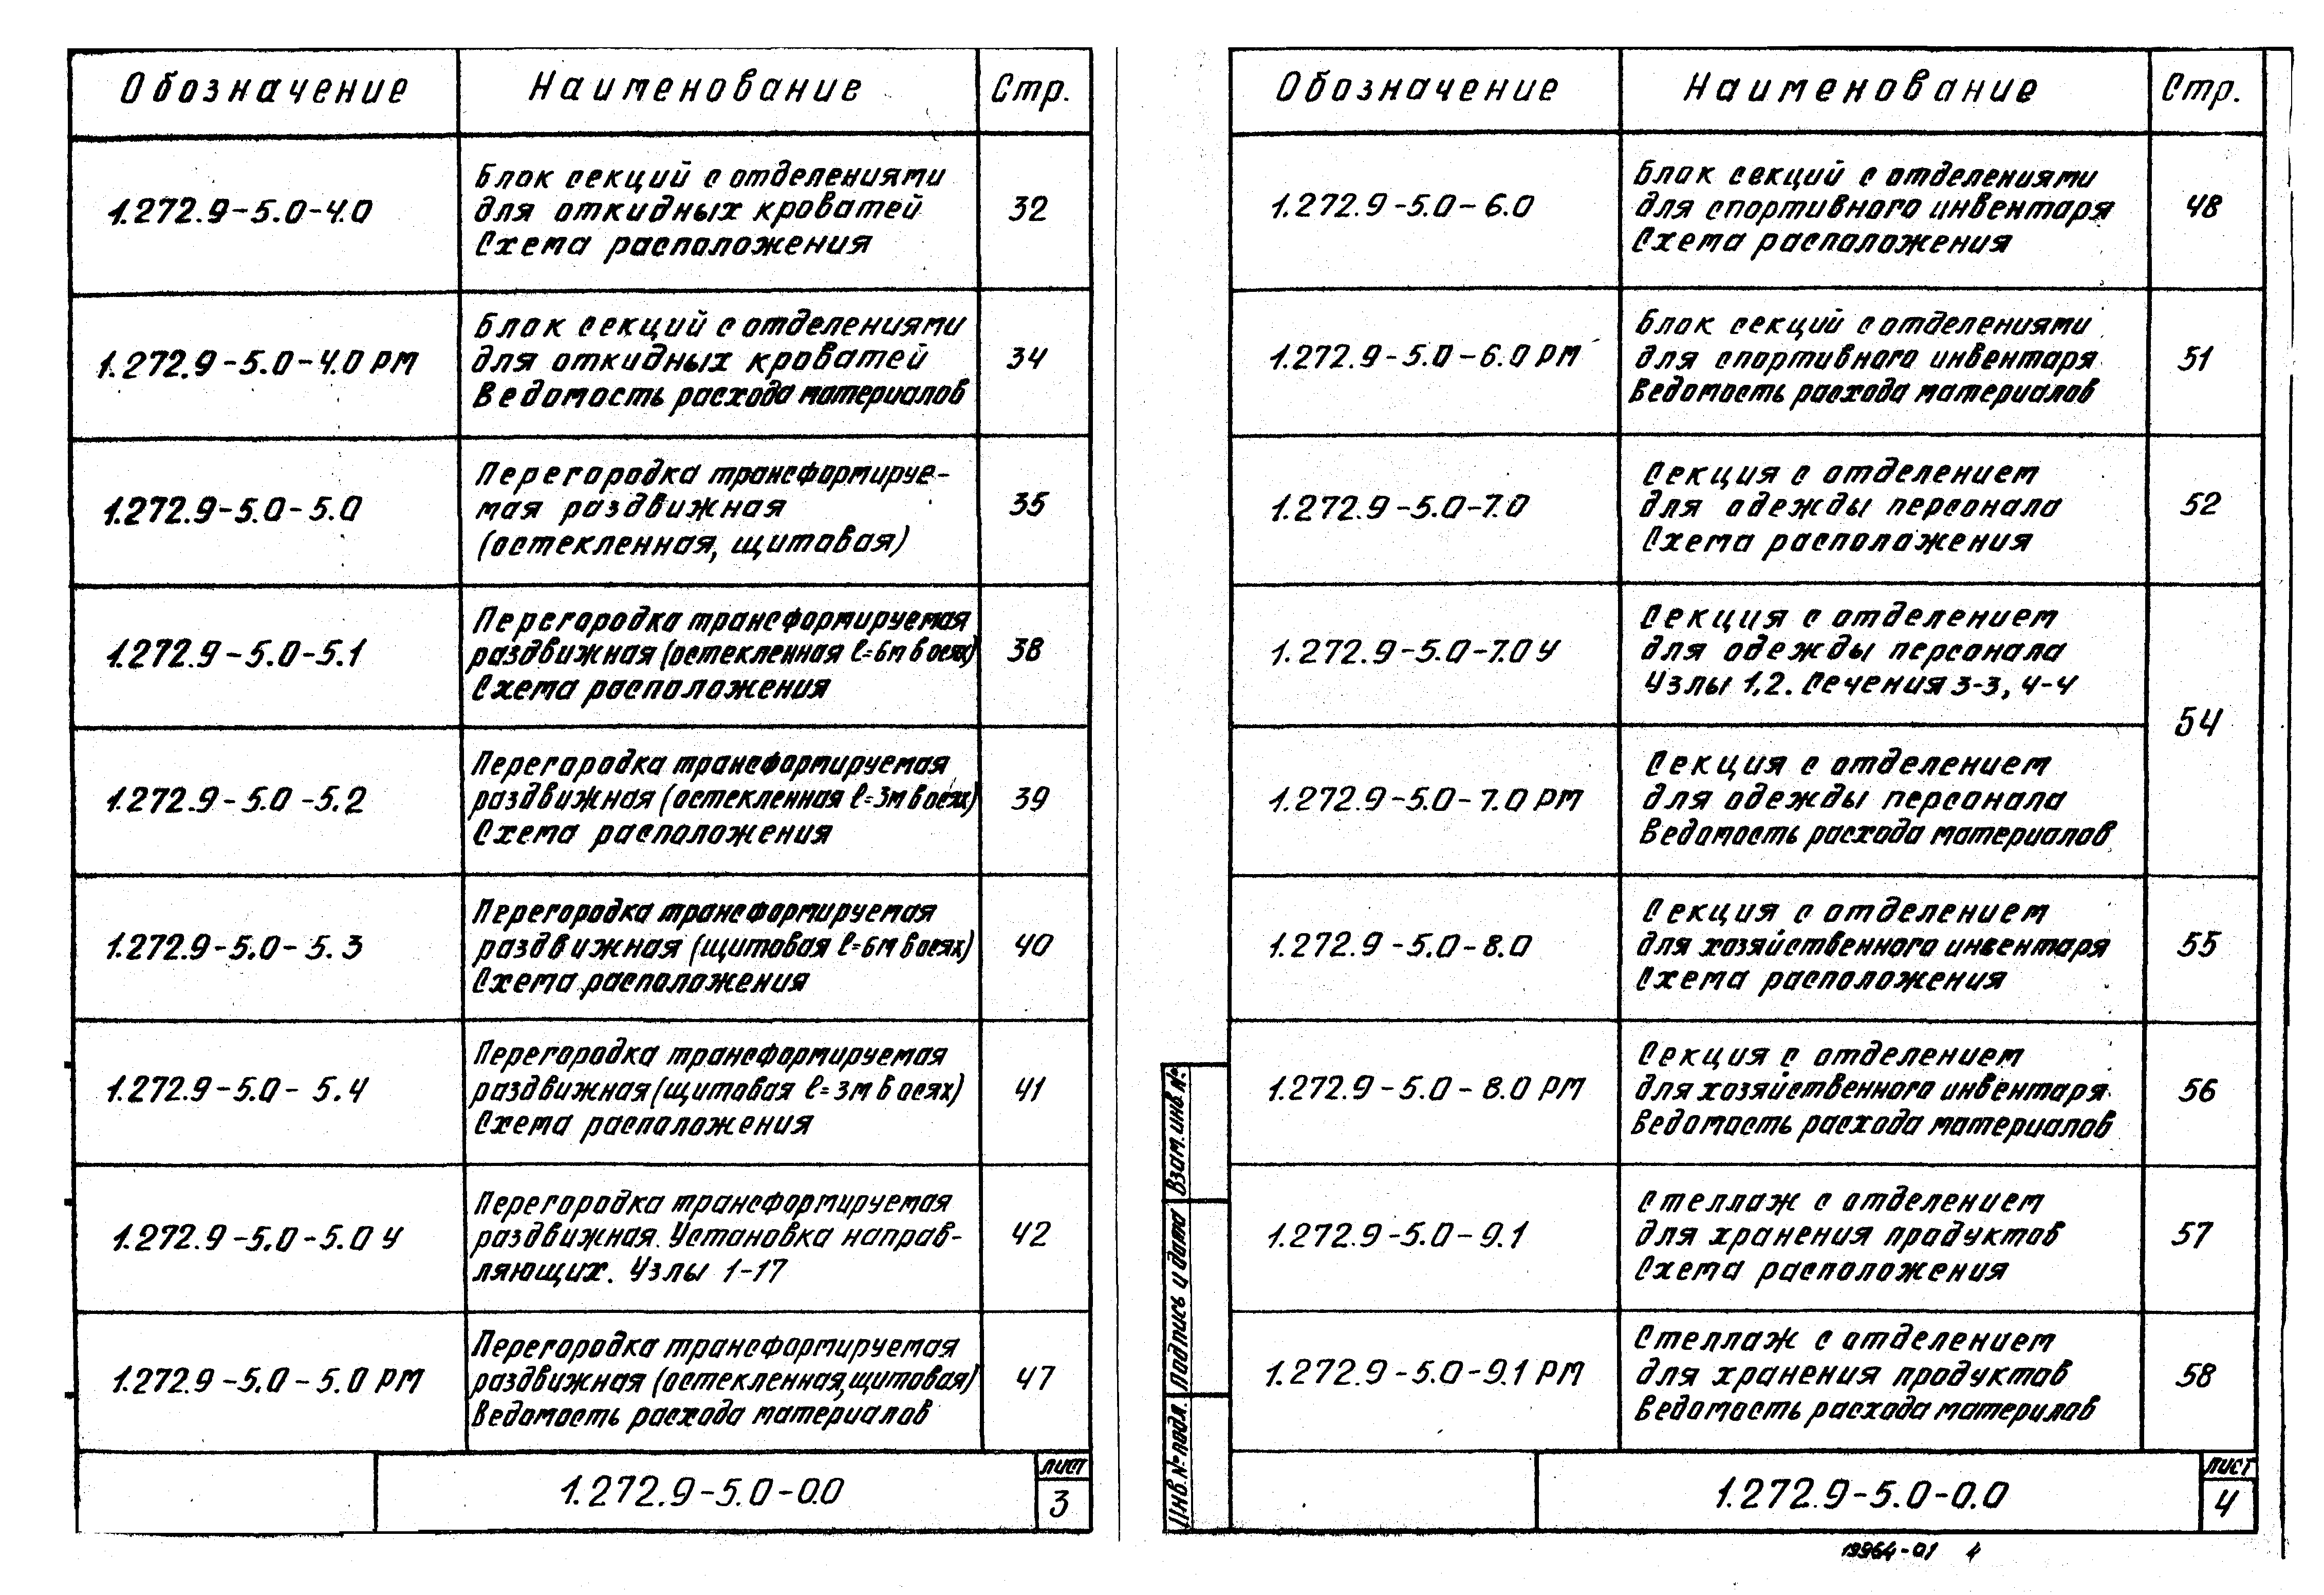 Обозначение Наименование Стр.
1.272.9-5.0-4.0
Блок секций с отделениями
для откидных кроватей
Схема расположения
32
1.272.9-5.0-4.0 РМ
Блок секций с отделениями
для откидных кроватей
Ведомость расхода материалов
34
1.272.9-5.0-5.0
Перегородка трансформируе-
мая раздвижная
(остекленная, щитовая)
35
1.272.9-5.0-5.1
Перегородка трансформируемая
раздвижная (остекленная ℓ=6м в осях)
Схема расположения
38
1.272.9-5.0-5.2
Перегородка трансформируемая
раздвижная (остекленная ℓ=3м в осях)
Схема расположения
39
1.272.9-5.0-5.3
Перегородка трансформируемая
раздвижная (щитовая ℓ=6м в осях)
Схема расположения
40
1.272.9-5.0-5.4
Перегородка трансформируемая
раздвижная (щитовая ℓ=3м в осях)
Схема расположения
41
1.272.9-5.0-5.0 У
Перегородка трансформируемая
раздвижная. Установка направ-
ляющих. Узлы 1-17
42
1.272.9-5.0-5.0 РМ
Перегородка трансформируемая
раздвижная (остекленная, щитовая)
Ведомость расхода материалов
47
1.272.9-5.0-0.0
лист
3
Обозначение Наименование Стр.
1.272.9-5.0-6.0
Блок секций с отделениями
для спортивного инвентаря
Схема расположения
48
1.272.9-5.0-6.0 РМ
Блок секций с отделениями
для спортивного инвентаря
Ведомость расхода материалов
51
1.272.9-5.0-7.0
Секция с отделением
для одежды персонала
Схема расположения
52
1.272.9-5.0-7.0 У
Секция с отделением
для одежды персонала
Узлы 1,2. Сечения 3-3, 4-4
54
1.272.9-5.0-7.0 РМ
Секция с отделением
для одежды персонала
Ведомость расхода материалов
1.272.9-5.0-8.0
Секция с отделением
для хозяйственного инвентаря
Схема расположения
55
1.272.9-5.0-8.0 РМ
Секция с отделением
для хозяйственного инвентаря
Ведомость расхода материалов
56
1.272.9-5.0-9.1
Стеллаж с отделением
для хранения продуктов
Схема расположения
57
1.272.9-5.0-9.1 РМ
Стеллаж с отделением
для хранения продуктов
Ведомость расхода материлов
58
Взам. инв. №
Подпись и дата
Инв. № подл.
1.272.9-5.0-0.0
лист
4
19964-01 4